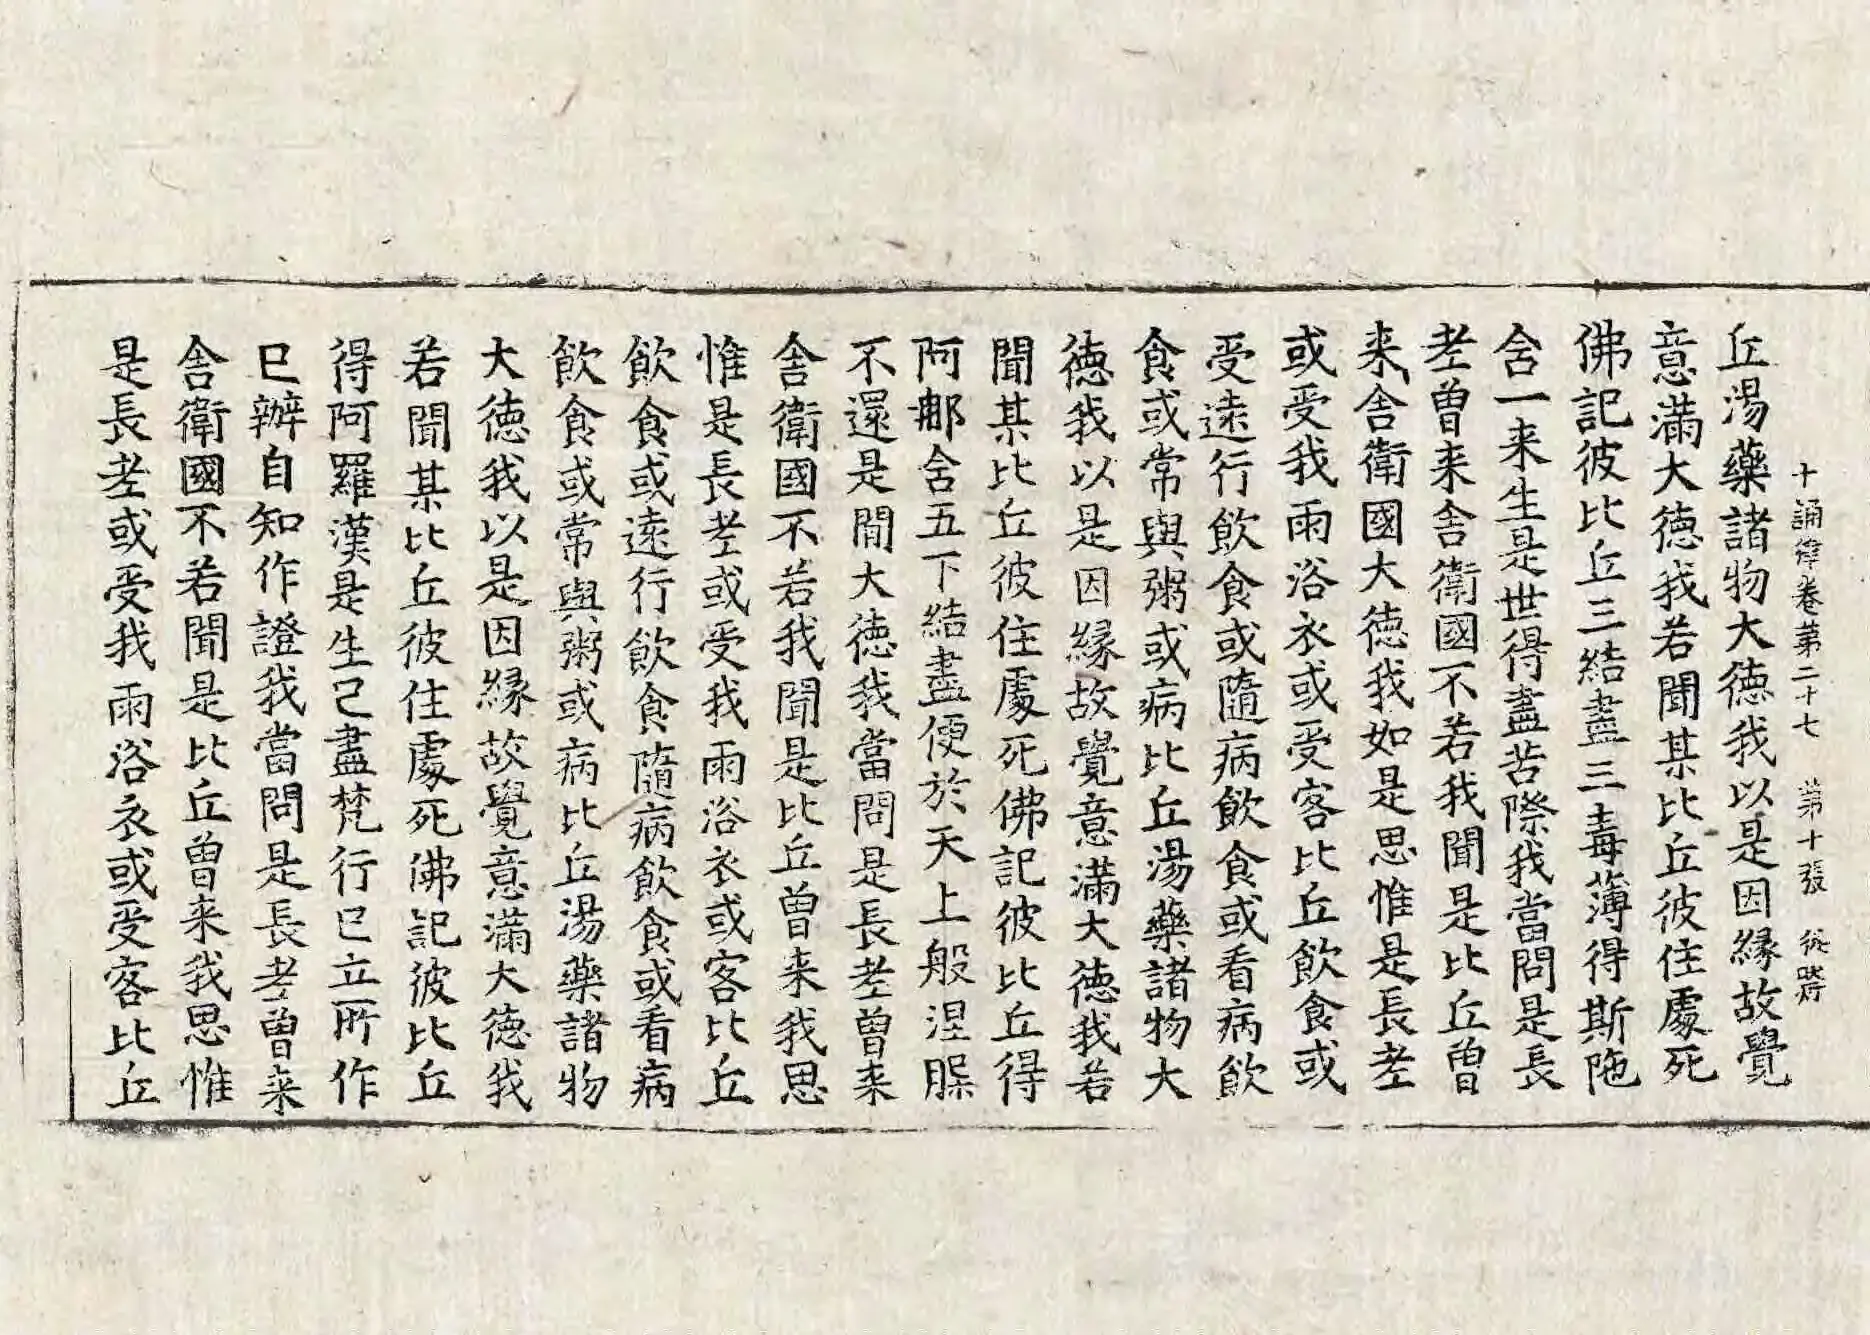 十誦律卷第二十七 第十張 從
丘湯藥諸物大德我以是因緣故覺
意滿大德我若聞某比丘彼住處死
佛記彼比丘三結盡三毒薄得斯陁
含一来生是世得盡苦際我當問是長
老曾来舍衛國不若我聞是比丘曾
来舍衛國大德我如是思惟是長老
或受我雨浴衣或受客比丘飲食或
受遠行飲食或隨病飲食或看病飲
食或常與粥或病比丘湯藥諸物大
德我以是因緣故覺意滿大德我若
聞某比丘彼住處死佛記彼比丘得
阿那含五下結盡便於天上般涅槃
不還是間大德我當問是長老曾来
舍衛國不若我聞是比丘曾来我思
惟是長老或受我雨浴衣或客比丘
飲食或遠行飲食隨病飲食或看病
飲食或常與粥或病比丘湯藥諸物
大德我以是因緣故覺意滿大德我
若聞某比丘彼住處死佛記彼比丘
得阿羅漢是生已盡梵行已立所作
已辦自知作證我當問是長老曾来
舍衛國不若聞是比丘曾来我思惟
是長老或受我雨浴衣或受客比丘